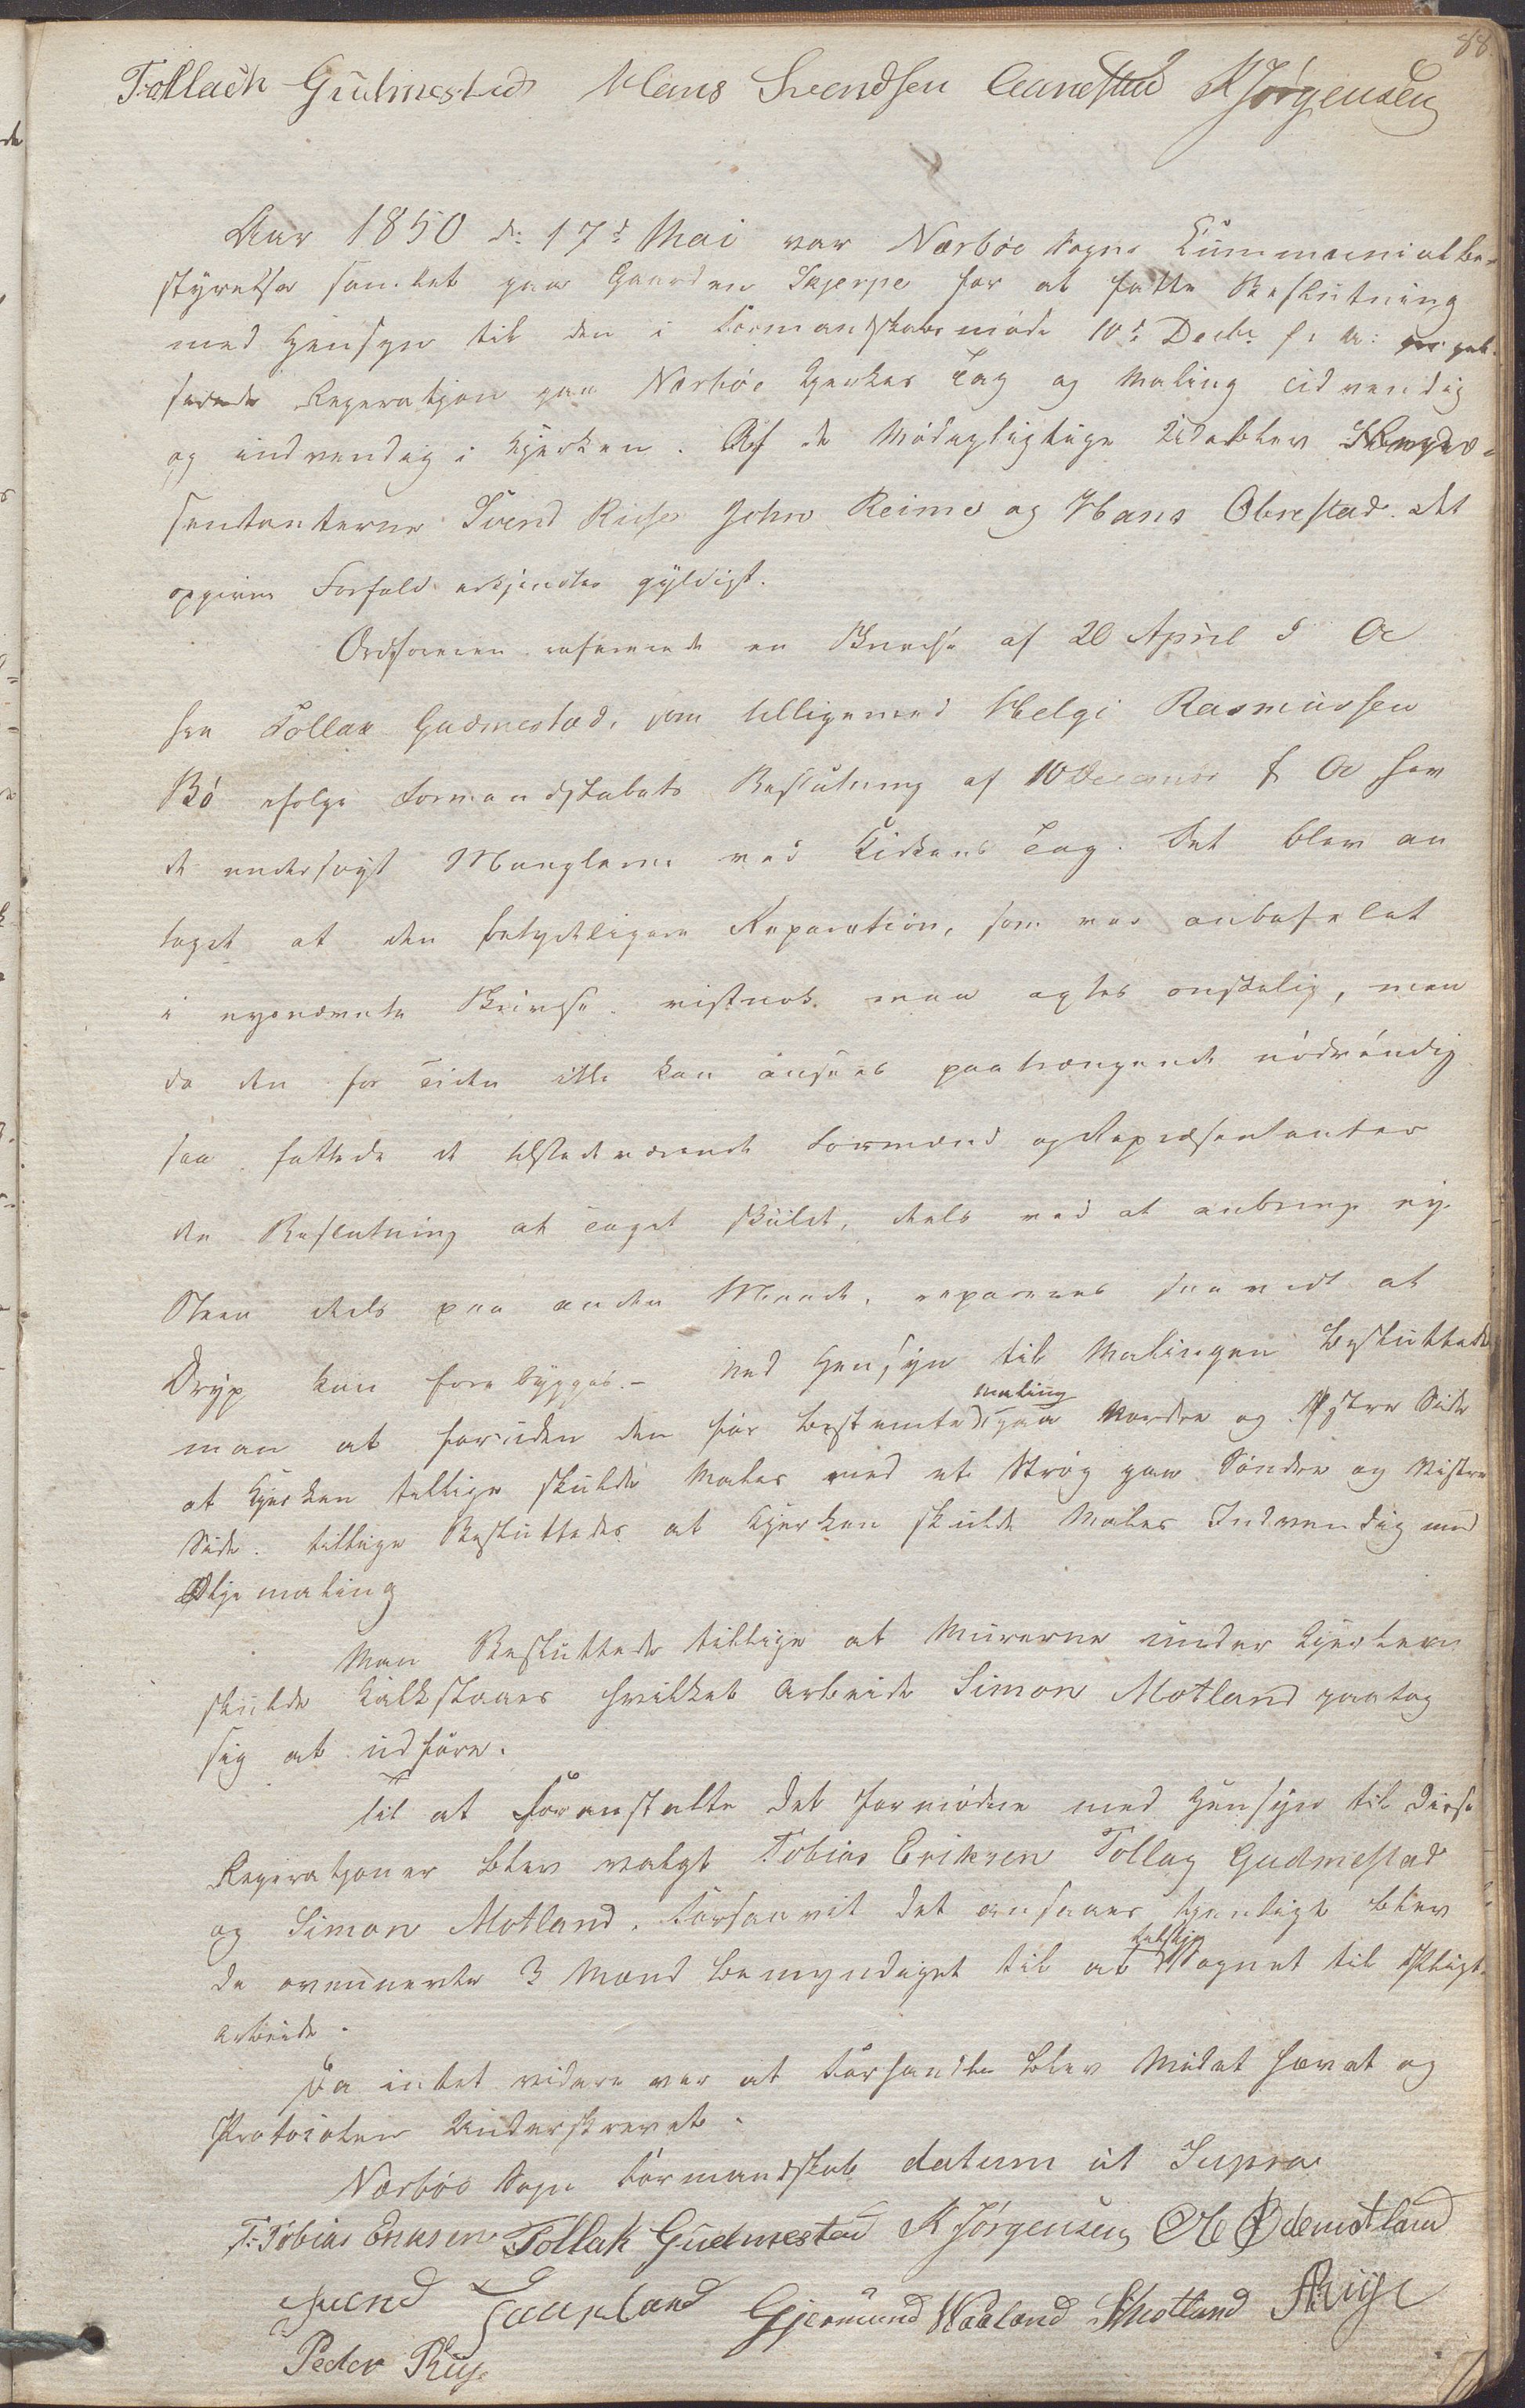 88
Tollach Gudmestad Hans Svendsen Aanestad K Jörgensen
Aar 1850 d: 17d Mai var Nærböe Sogns Kummunialbe-
styrelse samlet paa Gaarden Skjerpe for at fatte Beslutning
med Hensyn til den i Formandskabsmöde 10d Decbr f: A:
Reperatjon paa Nærböe Kjerkes Tag og Maling udvendig
og indvendig i Kjerken. Af de Mödepligtige Udeblev Repræ-
sentanterne Svend Riise John Reime og Hans Obrestad. Det
opgivne Forfald erkjendtes gyldigt.
Ordföreren refererede en Skrivelse af 20 April d A
fra Tollak Gudmestad, som tilligemed Helge Rasmussen
Bö ifölge Formandskabets Beslutning af 10 December f A hav
de undersögt Manglerne ved Kirkens Tag. Det blev an
taget at den betydeligere Reparation, som var anbefalet
i nysnævnte Skrivelse vistnok maa agtes önskelig, men
da den for Tiden ikke kan ansees paatrængende nödvendig
saa fattede de tilstedeværende Formænd og Repræsentanter
den Beslutning at Taget skulde, dels ved at anbringe ny
Steen dels paa anden Maade, repareres saavidt at
Dryp kan forebygges. - Med Hensyn til Malingen Besluttede
man at foruden den för bestemte maling paa Nordre og Östre Side
at Kjerken tillige skulde Males med et Strög paa Söndre og Vestre
Side. tillige Besluttedes at Kjerken skulde Males Indvendig med
Oljemaling
Man Besluttede tillige at Murerne under Kjerken
skulde kalkslaaes hvilket Arbeide Simon Motland paatog
sig at udföre.
Til at Foranstalte det fornödne med Hensyn til Disse
Reperatjoner blev valgt Tobias Eriksen Tollag Gudmestad
og Simon Motland. Forsaavit det ansaaes tjenligt blev
de ovennevnte 3 Mænd bemyndiget til at tilsige Sognet til Pligt-
arbeide.
Da intet videre var at Forhandle blev Mödet hævet og
Protocolen Underskrevet.
Nærböe Sogns Formandskab datum ut Supra
T. Tobias Eriksen Tollak Gudmestad K Jörgensen Ole Ödemotland
Svend Gjermund Waaland SMotland ARiise
Peder Riise